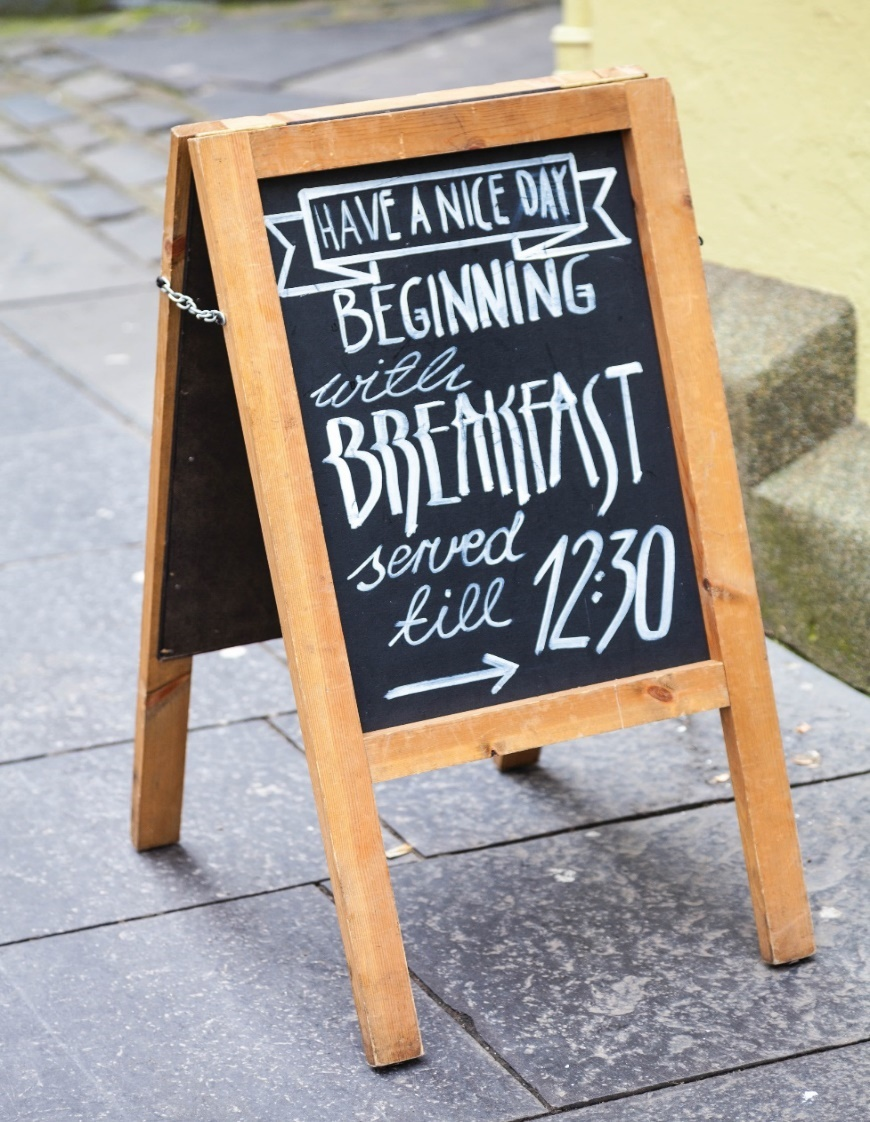 HAVE A NICE DAY
BEGINNING
with
BREAKFAST
served
till 12:30